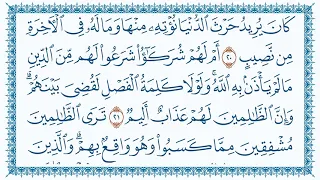 كَانَ يُرِيدُ حَرْثَ ٱلدُّنْيَا نُؤْتِهِۦ مِنْهَا وَمَا لَهُۥ فِى ٱلْأَخِرَةِ
مِن نَّصِيبٍ ٢٠ أَمْ لَهُمْ شُرَكَٰٓؤُا۟ شَرَعُوا۟ لَهُم مِّنَ ٱلدِّينِ
مَا لَمْ يَأْذَنۢ بِهِ ٱللَّهُ ۚ وَلَوْلَا كَلِمَةُ ٱلْفَصْلِ لَقُضِىَ بَيْنَهُمْ ۗ
وَإِنَّ ٱلظَّٰلِمِينَ لَهُمْ عَذَابٌ أَلِيمٌ ٢١ تَرَى ٱلظَّٰلِمِينَ
مُشْفِقِينَ مِمَّا كَسَبُوا۟ وَهُوَ وَاقِعٌۢ بِهِمْ ۗ وَٱلَّذِينَ